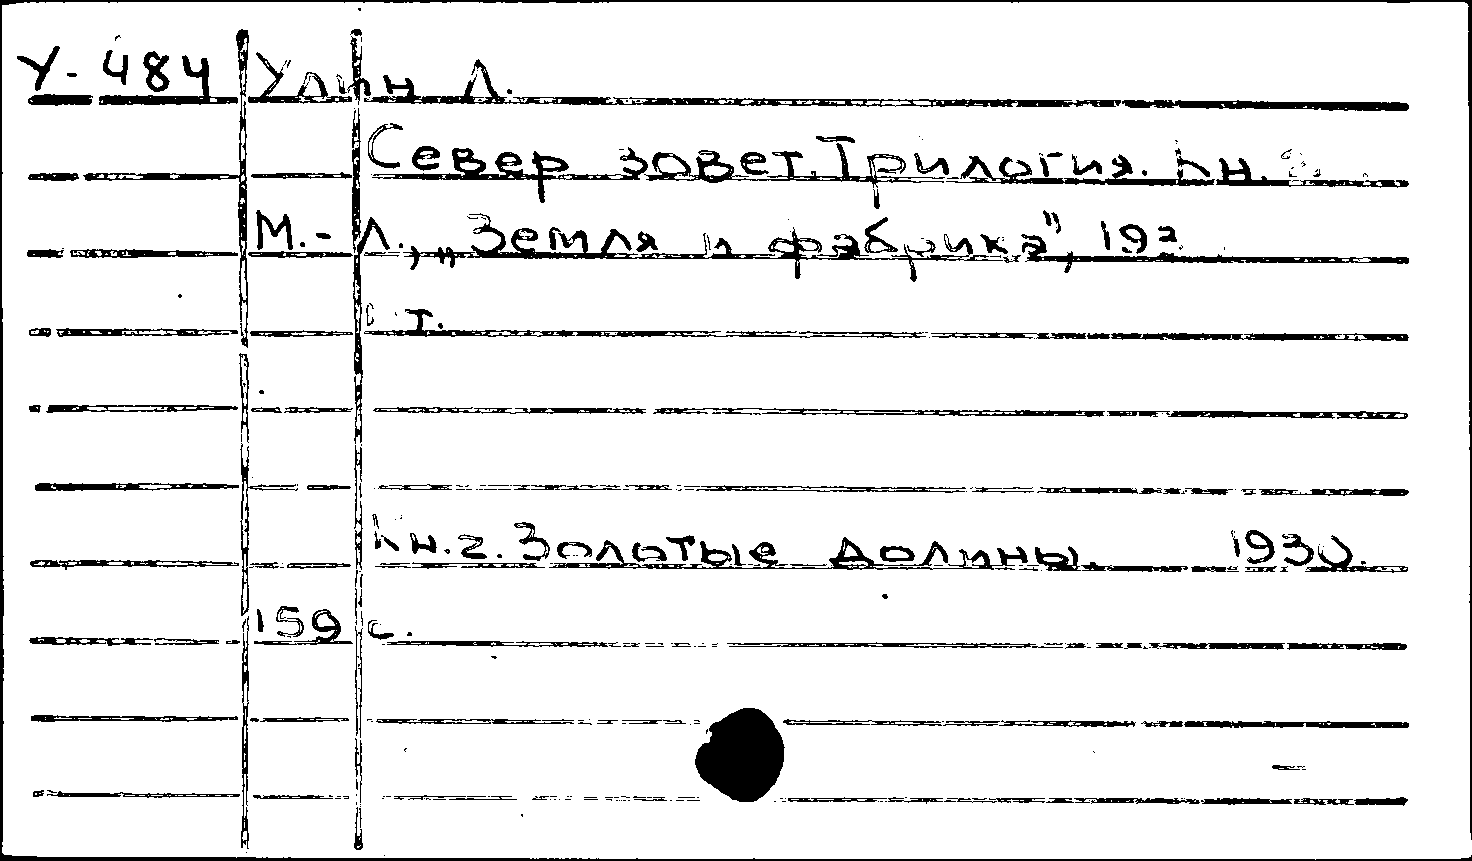 У-484 Улин Л.
Север зовет. Трилогия. Кн.
М.-Л., „Земля и фабрика",
т.
Кн. 2. Золотые долины. 1930.
159 с.